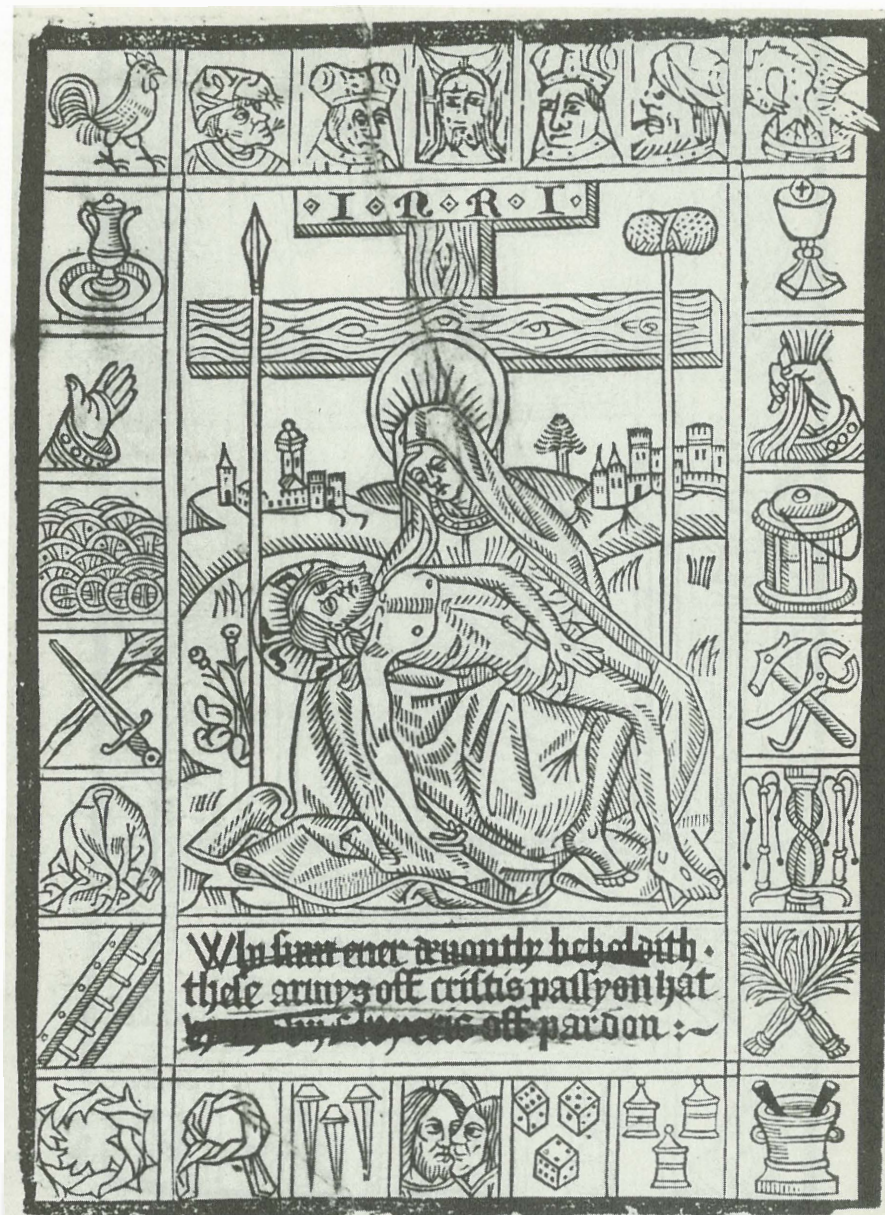 I·N·R·I
Who sum euer deuoutly beholdith ·
these armys off cristis passyon hat
yeris off pardon :~